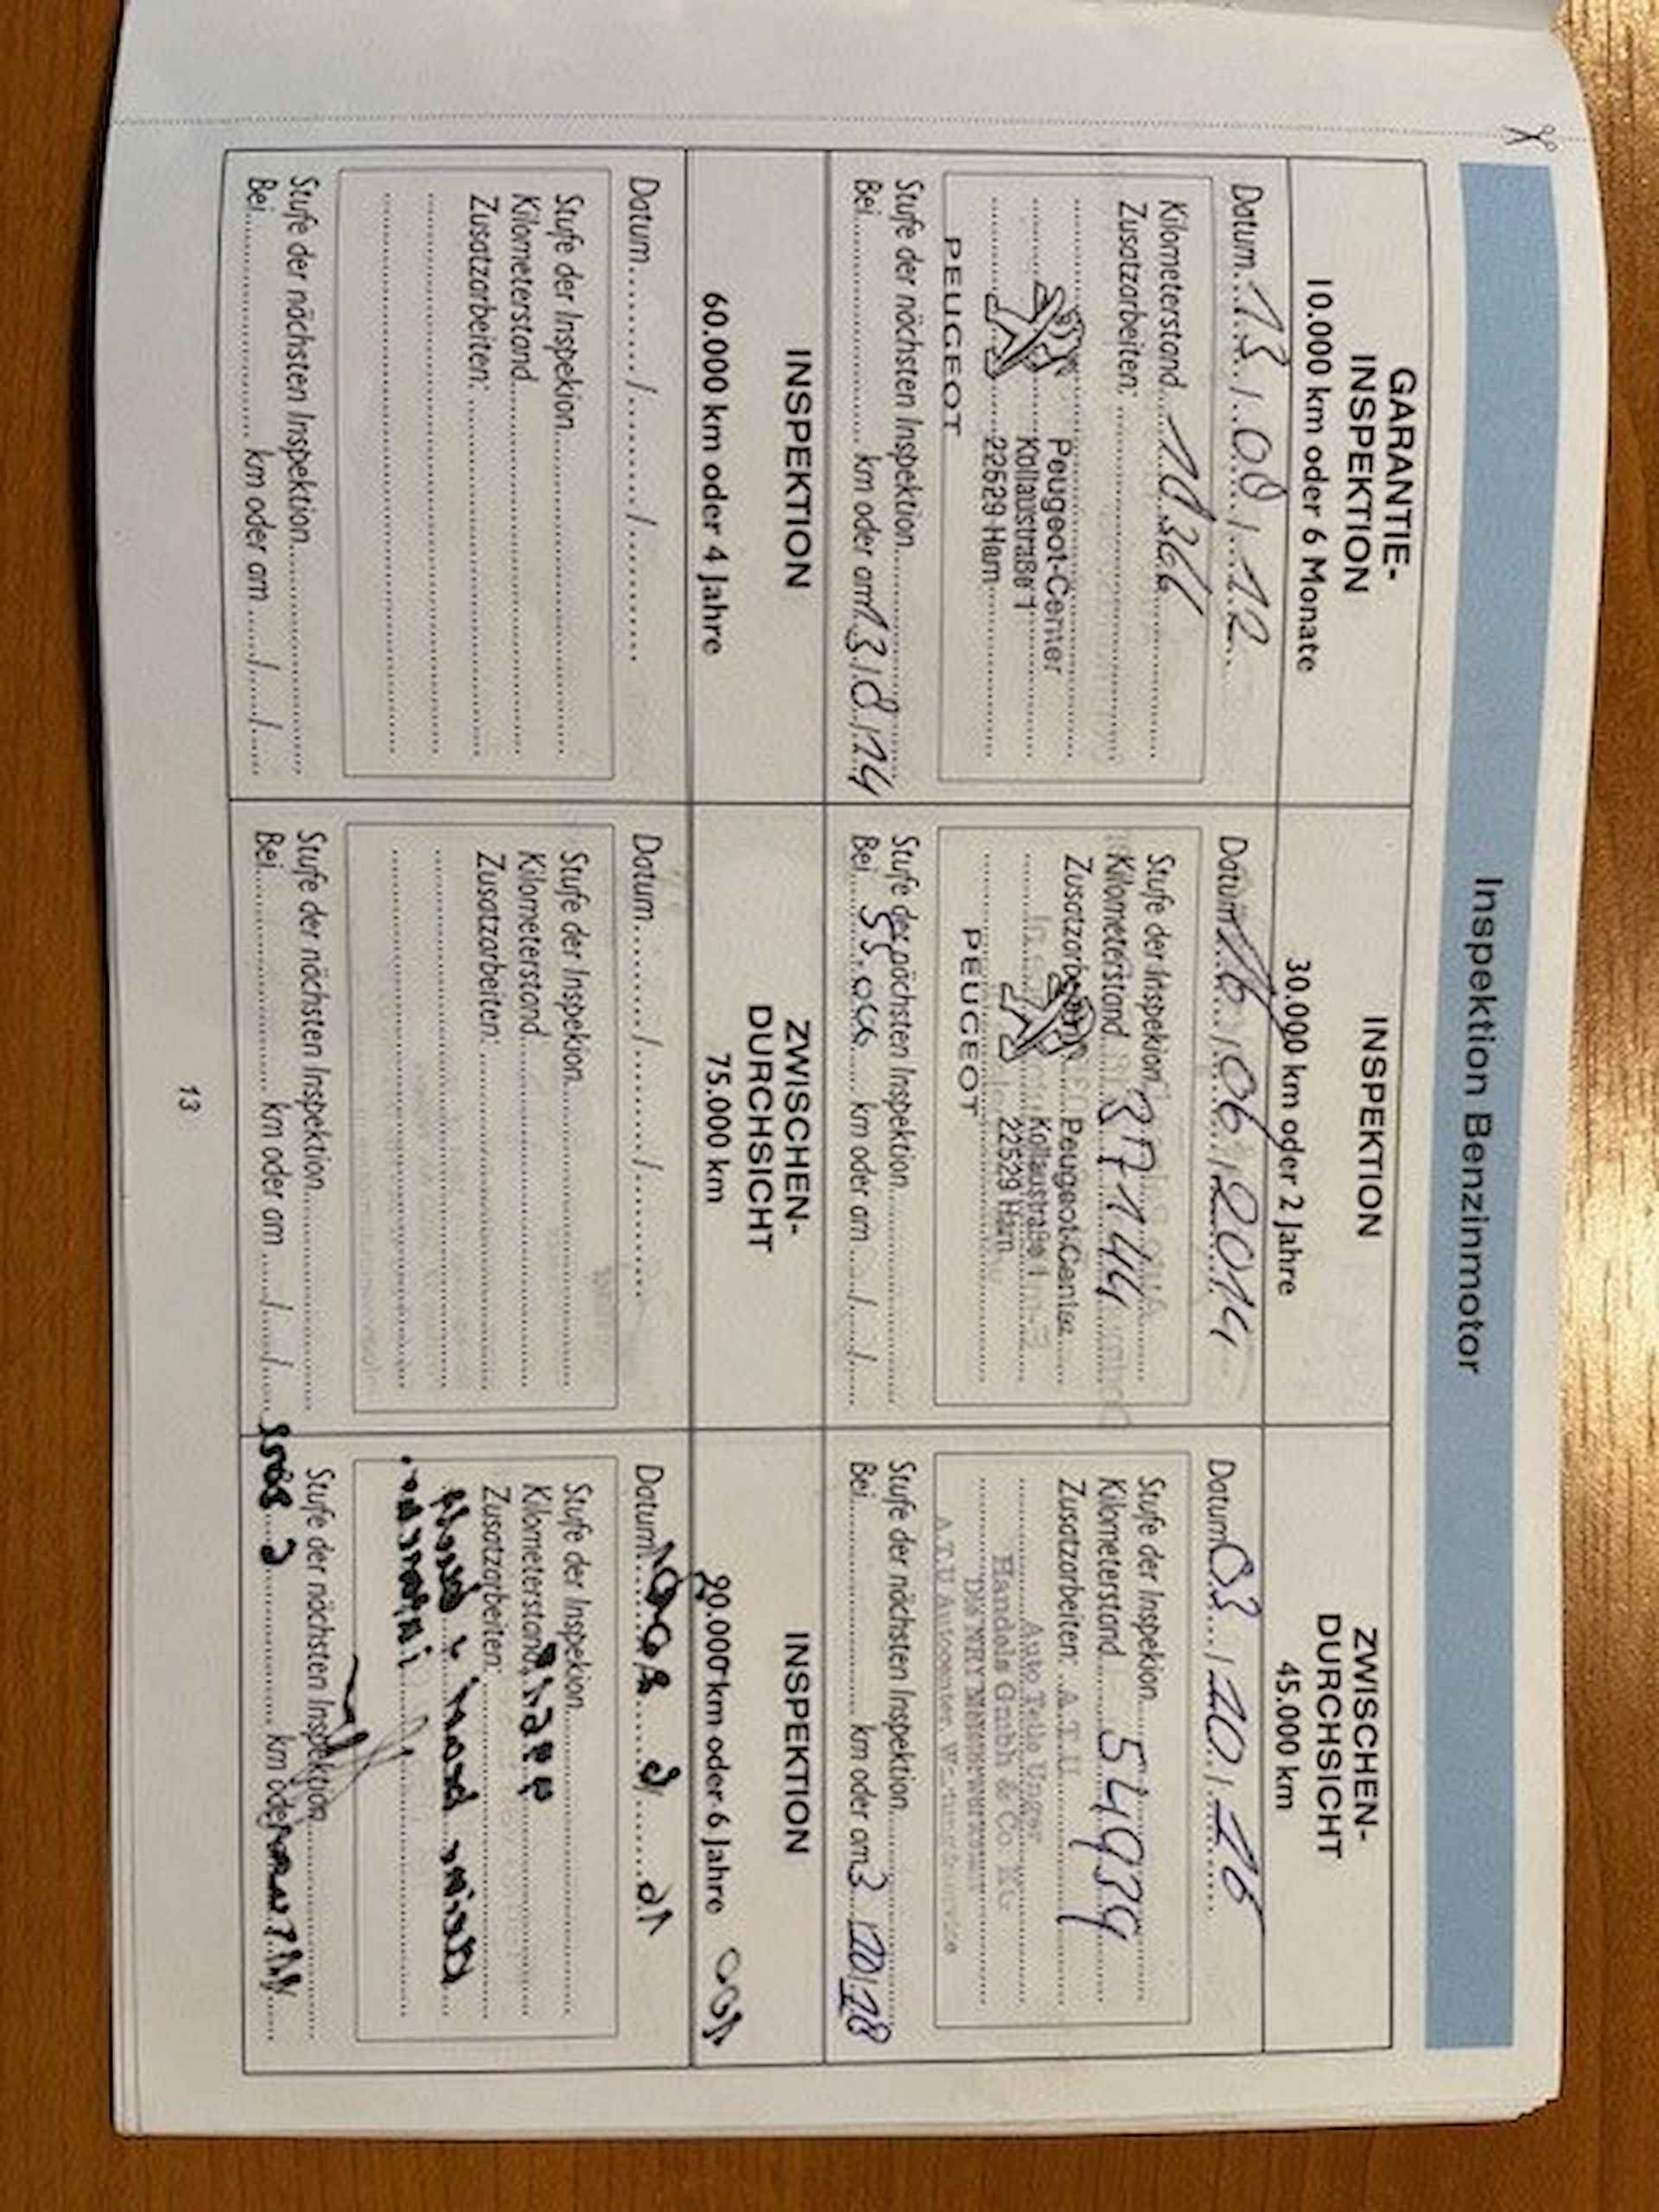 Inspektion Benzinmotor
GARANTIE-
INSPEKTION
10.000 km oder 6 Monate
Datum 13 / 08 / 12
Kilometerstand
Zusatzarbeiten:
Peugeot-Center
Kollaustraße 1
22529 Ham
PEUGEOT
Stufe der nächsten Inspektion
Bei km oder am 13 / 8 / 14
INSPEKTION
30.000 km oder 2 Jahre
Datum 16 / 06 / 2014
Stufe der Inspekion
Kilometerstand 37144
Zusatzarbeiten
Peugeot-Center
Kollaustraße 1
22529 Ham
PEUGEOT
Stufe der nächsten Inspektion
Bei 55.000 km oder am / /
ZWISCHEN-
DURCHSICHT
45.000 km
Datum 03 / 10 / 16
Stufe der Inspekion
Kilometerstand 54939
Zusatzarbeiten: A.T.U
Auto Teile Unger
Handels GmbH & Co. KG
A.T.U Autocenter
Stufe der nächsten Inspektion
Bei km oder am 3 / 10 / 18
INSPEKTION
60.000 km oder 4 Jahre
Datum / /
Stufe der Inspekion
Kilometerstand
Zusatzarbeiten:
Stufe der nächsten Inspektion
Bei km oder am / /
ZWISCHEN-
DURCHSICHT
75.000 km
Datum / /
Stufe der Inspekion
Kilometerstand
Zusatzarbeiten:
Stufe der nächsten Inspektion
Bei km oder am / /
INSPEKTION
km oder 6 Jahre
Datum
Stufe der Inspekion
Kilometerstand
Zusatzarbeiten:
Stufe der nächsten Inspektion
km oder
13